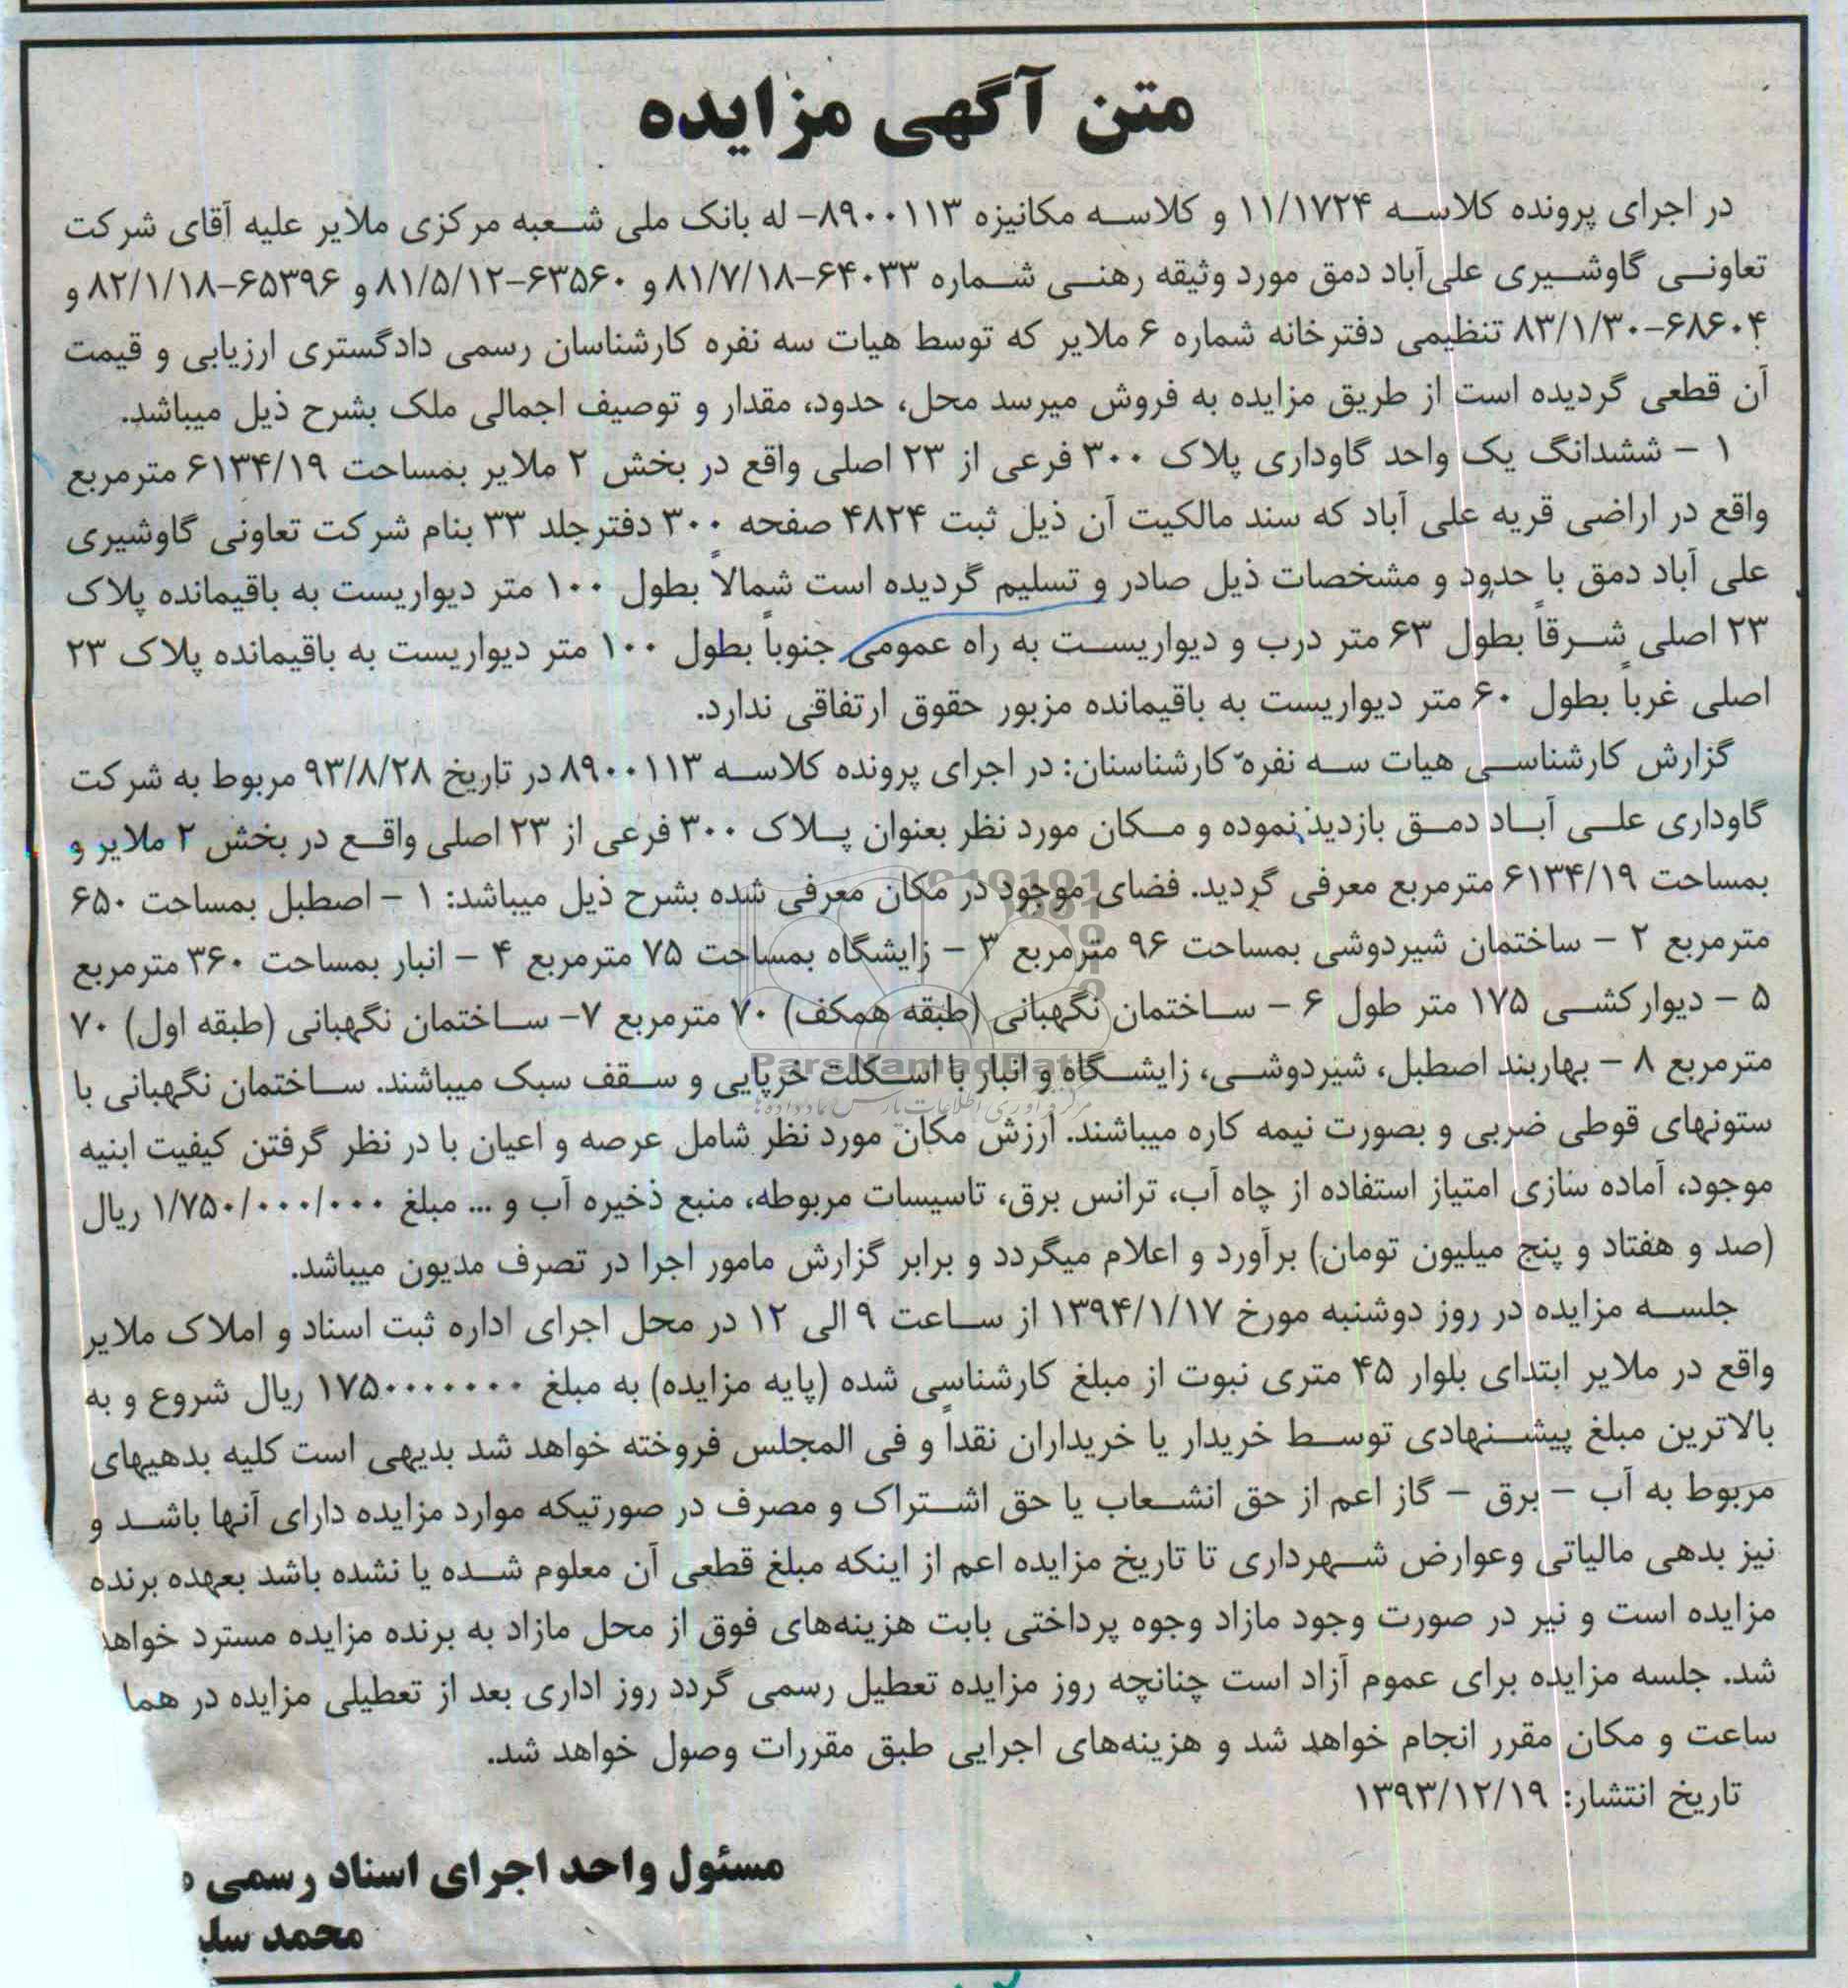 متن آگهی مزایده
در اجرای پرونده کلاسه ۱۱/۱۷۲۴ و کلاسه مکانیزه ۸۹۰۰۱۱۳- له بانک ملی شعبه مرکزی ملایر علیه آقای شرکت
تعاونی گاوشیری علی‌آباد دمق مورد وثیقه رهنی شماره ۶۴۰۳۳-۸۱/۷/۱۸ و ۶۳۵۶۰-۸۱/۵/۱۲ و ۶۵۳۹۶-۸۲/۱/۱۸ و
۶۸۶۰۴-۸۳/۱/۳۰ تنظیمی دفترخانه شماره ۶ ملایر که توسط هیات سه نفره کارشناسان رسمی دادگستری ارزیابی و قیمت
آن قطعی گردیده است از طریق مزایده به فروش میرسد محل، حدود، مقدار و توصیف اجمالی ملک بشرح ذیل میباشد.
۱ - ششدانگ یک واحد گاوداری پلاک ۳۰۰ فرعی از ۲۳ اصلی واقع در بخش ۲ ملایر بمساحت ۶۱۳۴/۱۹ مترمربع
واقع در اراضی قریه علی آباد که سند مالکیت آن ذیل ثبت ۴۸۲۴ صفحه ۳۰۰ دفترجلد ۳۳ بنام شرکت تعاونی گاوشیری
علی آباد دمق با حدود و مشخصات ذیل صادر و تسلیم گردیده است شمالاً بطول ۱۰۰ متر دیواریست به باقیمانده پلاک
۲۳ اصلی شرقاً بطول ۶۳ متر درب و دیواریست به راه عمومی جنوباً بطول ۱۰۰ متر دیواریست به باقیمانده پلاک ۲۳
اصلی غرباً بطول ۶۰ متر دیواریست به باقیمانده مزبور حقوق ارتفاقی ندارد.
گزارش کارشناسی هیات سه نفره کارشناسنان: در اجرای پرونده کلاسه ۸۹۰۰۱۱۳ در تاریخ ۹۳/۸/۲۸ مربوط به شرکت
گاوداری علی آباد دمق بازدید نموده و مکان مورد نظر بعنوان پلاک ۳۰۰ فرعی از ۲۳ اصلی واقع در بخش ۲ ملایر و
بمساحت ۶۱۳۴/۱۹ مترمربع معرفی گردید. فضای موجود در مکان معرفی شده بشرح ذیل میباشد: ۱ - اصطبل بمساحت ۶۵۰
مترمربع ۲ - ساختمان شیردوشی بمساحت ۹۶ مترمربع ۳ - زایشگاه بمساحت ۷۵ مترمربع ۴ - انبار بمساحت ۳۶۰ مترمربع
۵ - دیوارکشی ۱۷۵ متر طول ۶ - ساختمان نگهبانی (طبقه همکف) ۷۰ مترمربع ۷- ساختمان نگهبانی (طبقه اول) ۷۰
مترمربع ۸ - بهاربند اصطبل، شیردوشی، زایشگاه و انبار با اسکلت خرپایی و سقف سبک میباشند. ساختمان نگهبانی با
ParsNamadData
مرکز فرآوری اطلاعات پارس نماد داده ها
ستونهای قوطی ضربی و بصورت نیمه کاره میباشند. ارزش مکان مورد نظر شامل عرصه و اعیان با در نظر گرفتن کیفیت ابنیه
موجود، آماده سازی امتیاز استفاده از چاه آب، ترانس برق، تاسیسات مربوطه، منبع ذخیره آب و ... مبلغ ۱/۷۵۰/۰۰۰/۰۰۰ ریال
(صد و هفتاد و پنج میلیون تومان) برآورد و اعلام میگردد و برابر گزارش مامور اجرا در تصرف مدیون میباشد.
جلسه مزایده در روز دوشنبه مورخ ۱۳۹۴/۱/۱۷ از ساعت ۹ الی ۱۲ در محل اجرای اداره ثبت اسناد و املاک ملایر
واقع در ملایر ابتدای بلوار ۴۵ متری نبوت از مبلغ کارشناسی شده (پایه مزایده) به مبلغ ۱۷۵۰۰۰۰۰۰۰ ریال شروع و به
بالاترین مبلغ پیشنهادی توسط خریدار یا خریداران نقداً و فی المجلس فروخته خواهد شد بدیهی است کلیه بدهیهای
مربوط به آب - برق - گاز اعم از حق انشعاب یا حق اشتراک و مصرف در صورتیکه موارد مزایده دارای آنها باشد و
نیز بدهی مالیاتی وعوارض شهرداری تا تاریخ مزایده اعم از اینکه مبلغ قطعی آن معلوم شده یا نشده باشد بعهده برنده
مزایده است و نیر در صورت وجود مازاد وجوه پرداختی بابت هزینه‌های فوق از محل مازاد به برنده مزایده مسترد خواهد
شد. جلسه مزایده برای عموم آزاد است چنانچه روز مزایده تعطیل رسمی گردد روز اداری بعد از تعطیلی مزایده در هما
ساعت و مکان مقرر انجام خواهد شد و هزینه‌های اجرایی طبق مقررات وصول خواهد شد.
تاریخ انتشار: ۱۳۹۳/۱۲/۱۹
مسئول واحد اجرای اسناد رسمی
محمد